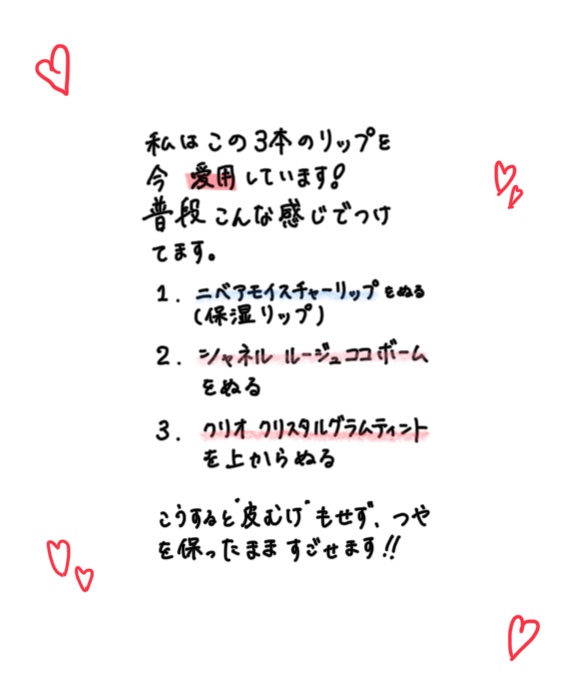 私はこの3本のリップを
今 愛用しています!
普段こんな感じでつけ
てます。
1. ニベアモイスチャーリップをぬる
(保湿リップ)
2. シャネル ルージュココボーム
をぬる
3. クリオ クリスタルグラムティント
を上からぬる
こうすると"皮むけ"もせず、つや
を保ったまますごせます!!